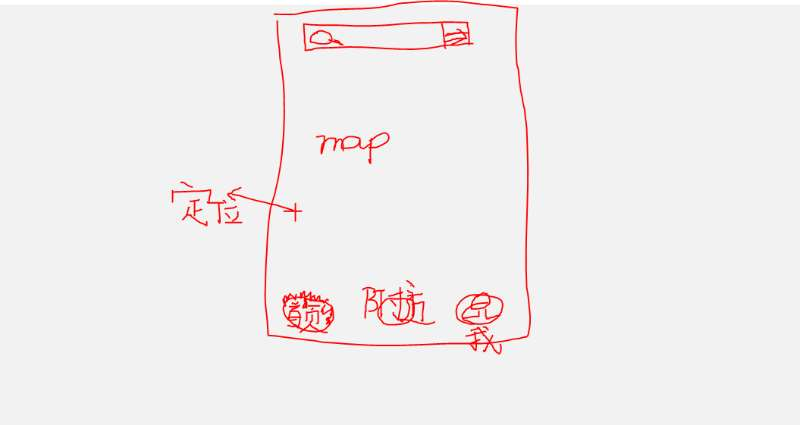 map
定位
首页 附近
我